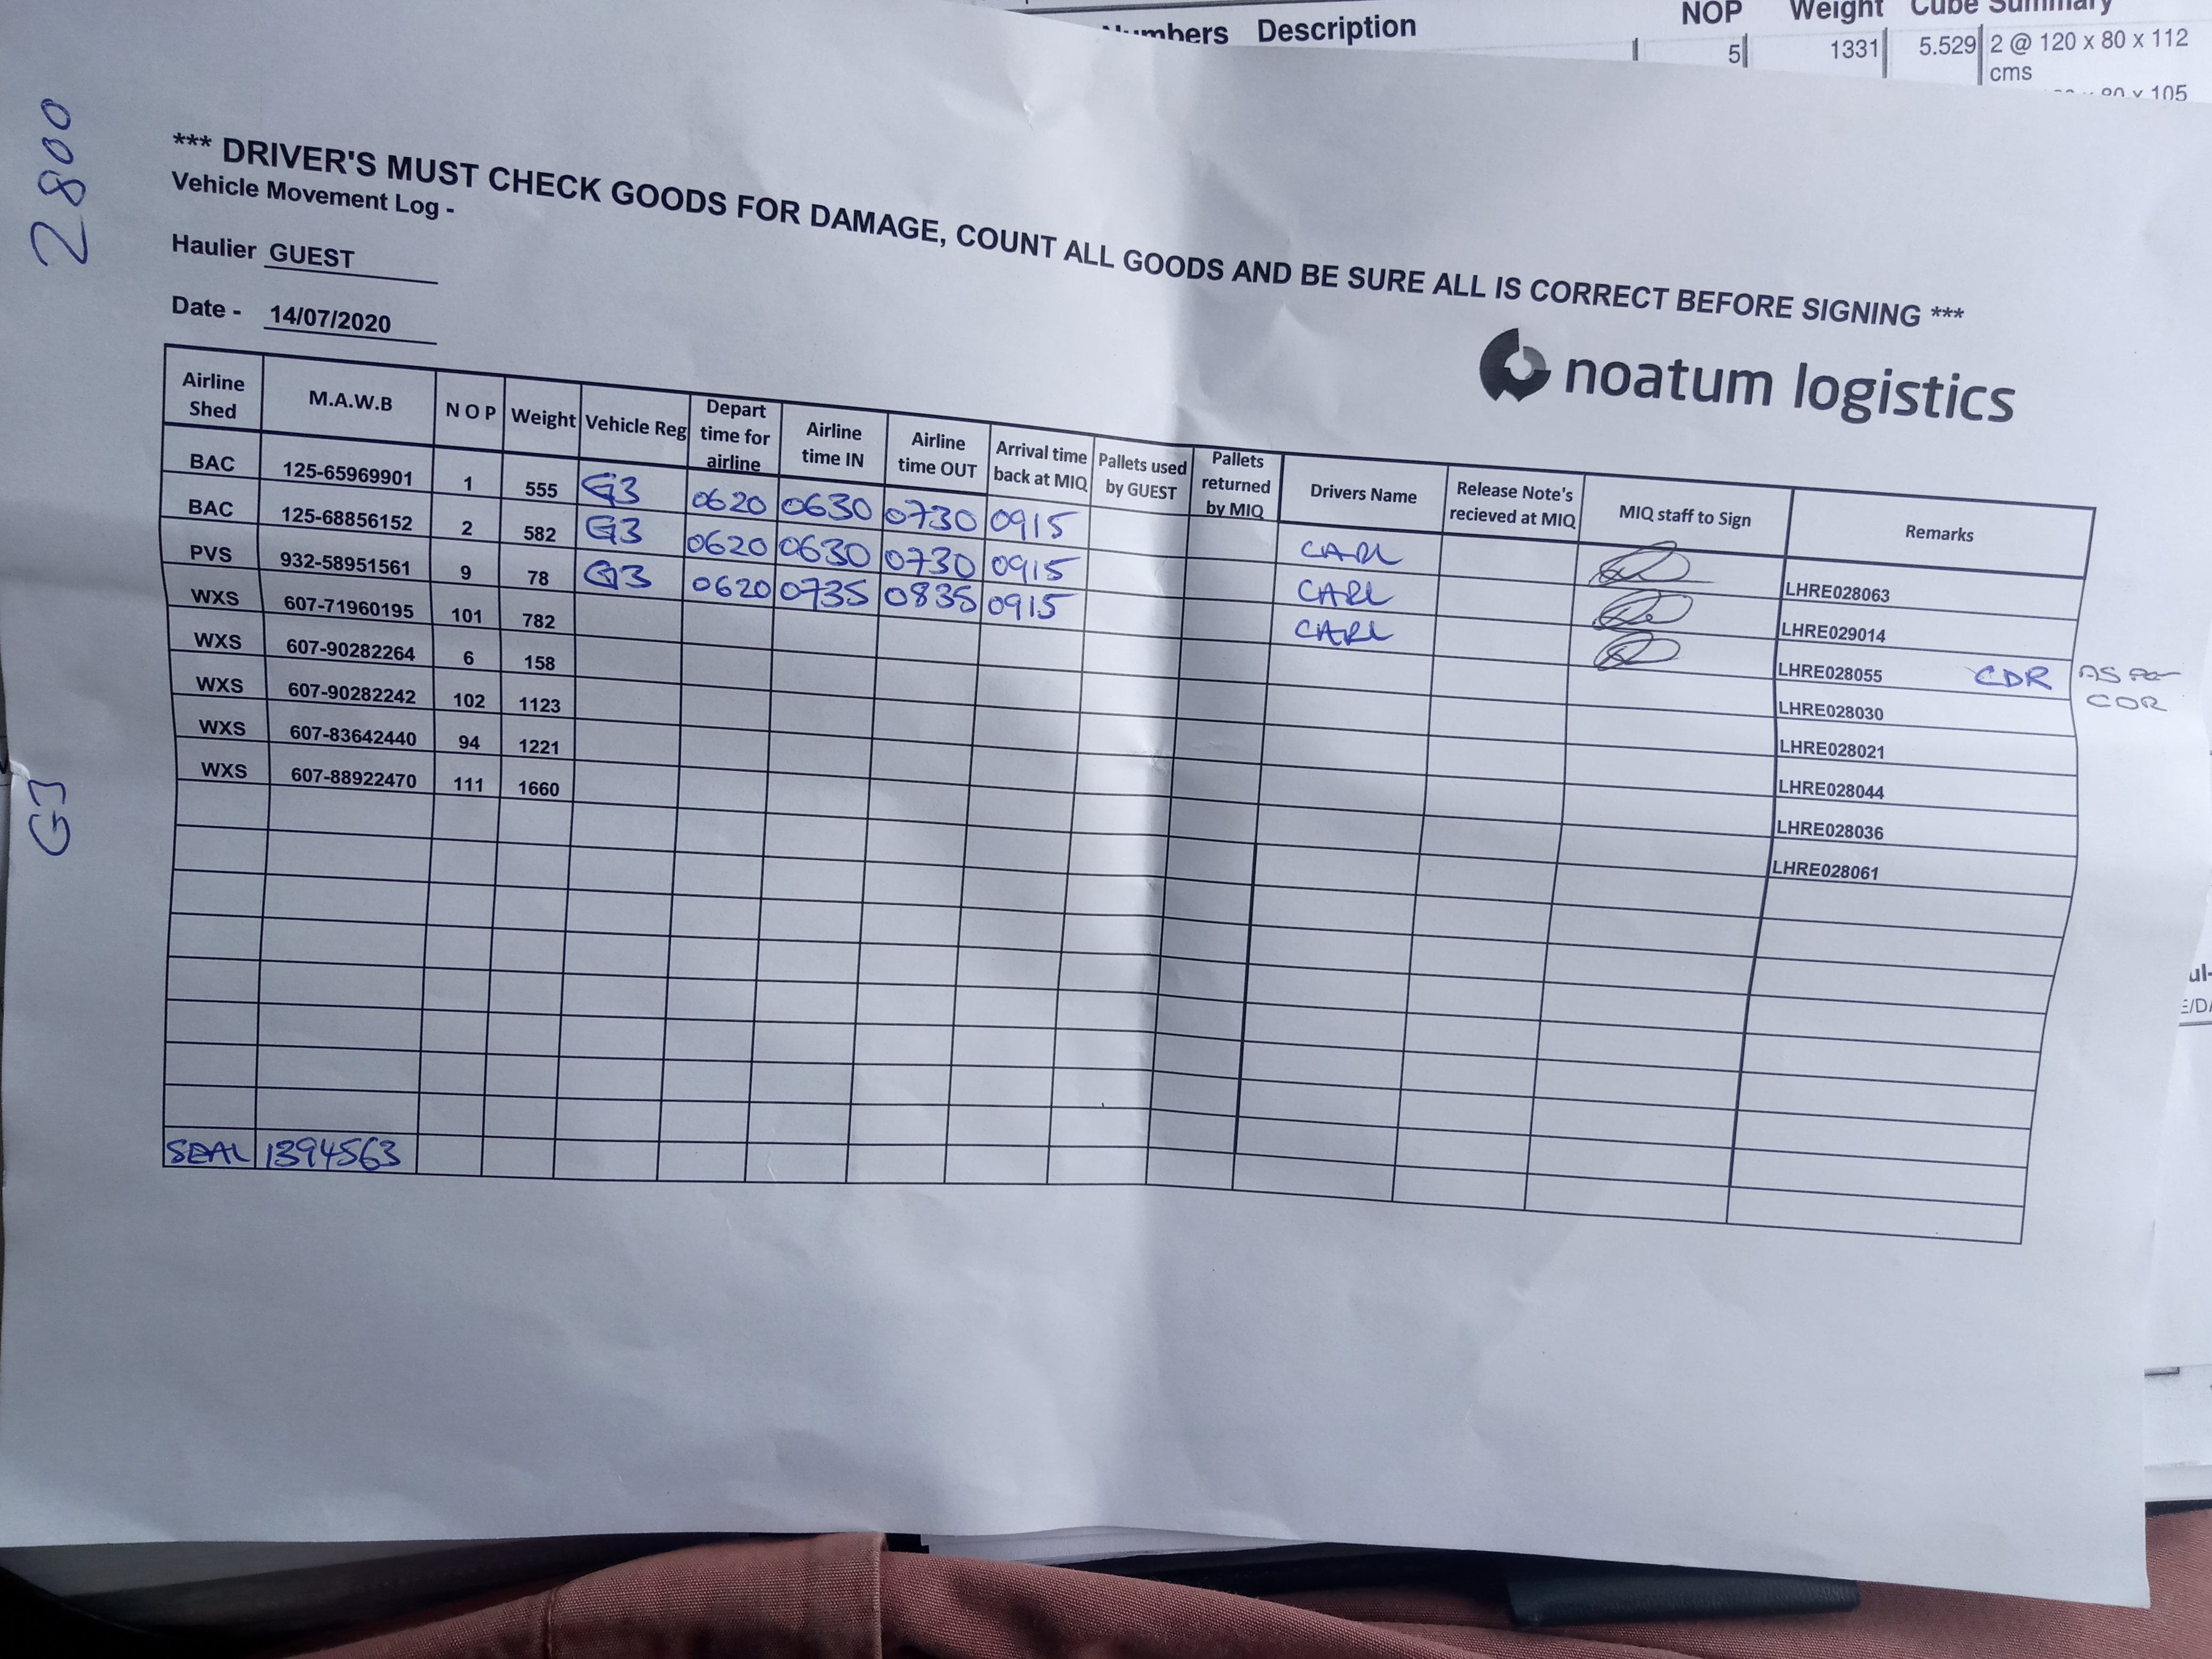 Numbers Description NOP Weight Cube Summary
5 1331 5.529 2 @ 120 x 80 x 112
cms
80 x 105
2800
*** DRIVER'S MUST CHECK GOODS FOR DAMAGE, COUNT ALL GOODS AND BE SURE ALL IS CORRECT BEFORE SIGNING ***
Vehicle Movement Log -
Haulier GUEST
Date - 14/07/2020
noatum logistics
Airline Shed M.A.W.B N O P Weight Vehicle Reg Depart time for airline Airline time IN Airline time OUT Arrival time back at MIQ Pallets used by GUEST Pallets returned by MIQ Drivers Name Release Note's recieved at MIQ MIQ staff to Sign Remarks
BAC 125-65969901 1 555 G3 0620 0630 0730 0915 CARL LHRE028063
BAC 125-68856152 2 582 G3 0620 0630 0730 0915 CARL LHRE029014
PVS 932-58951561 9 78 G3 0620 0735 0835 0915 CARL LHRE028055 CDR AS Per
CDR
WXS 607-71960195 101 782 LHRE028030
WXS 607-90282264 6 158 LHRE028021
WXS 607-90282242 102 1123 LHRE028044
WXS 607-83642440 94 1221 LHRE028036
WXS 607-88922470 111 1660 LHRE028061
G3
SEAL 1394563